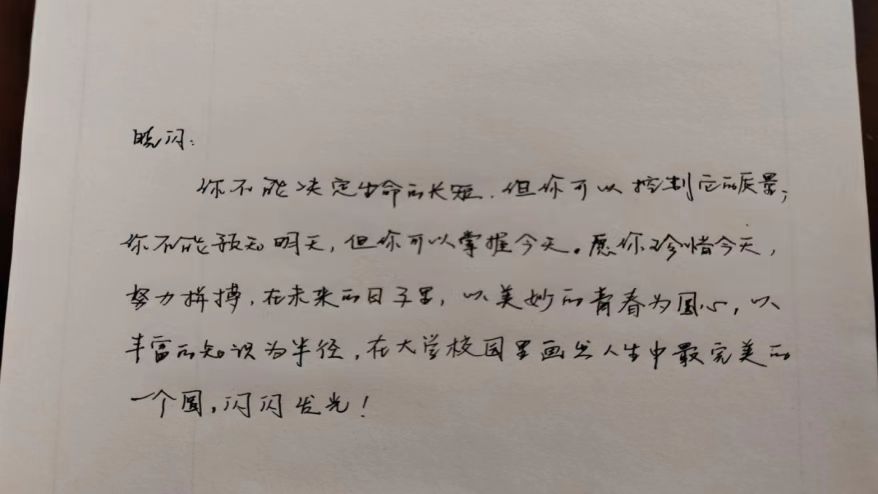 晓闪:
你不能决定生命的长短,但你可以控制它的质量;
你不能预知明天,但你可以掌握今天。愿你珍惜今天,
努力拼搏,在未来的日子里,以美妙的青春为圆心,以
丰富的知识为半径,在大学校园里画出人生中最完美的
一个圆,闪闪发光!